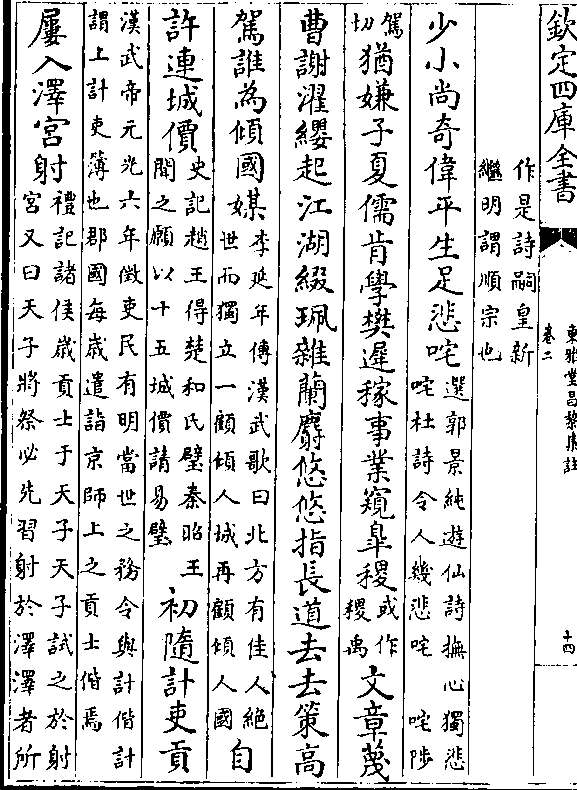 欽定四庫全書
東雅堂昌黎集註
卷二
十四
作是詩嗣皇新
繼明謂順宗也
少小尚奇偉平生足悲咤
選郭景純遊仙詩撫心獨悲
咤杜詩令人幾悲咤　咤陟
駕
切
猶嫌子夏儒肯學樊遲稼事業窺臯稷
或作
稷禹
文章蔑
曹謝濯纓起江湖綴珮雜蘭麝悠悠指長道去去策高
駕誰為傾國媒
李延年傳漢武歌曰北方有佳人絶
世而獨立一顧傾人城再顧傾人國
自
許連城價
史記趙王得楚和氏璧秦昭王
聞之願以十五城價請易璧
初隨計吏貢
漢武帝元光六年徵吏民有明當世之務令與計偕計
謂上計吏簿也郡國每歳遣詣京師上之貢士偕焉
屢入澤宮射
禮記諸侯歳貢士于天子天子試之於射
宮又曰天子將祭必先習射於澤澤者所